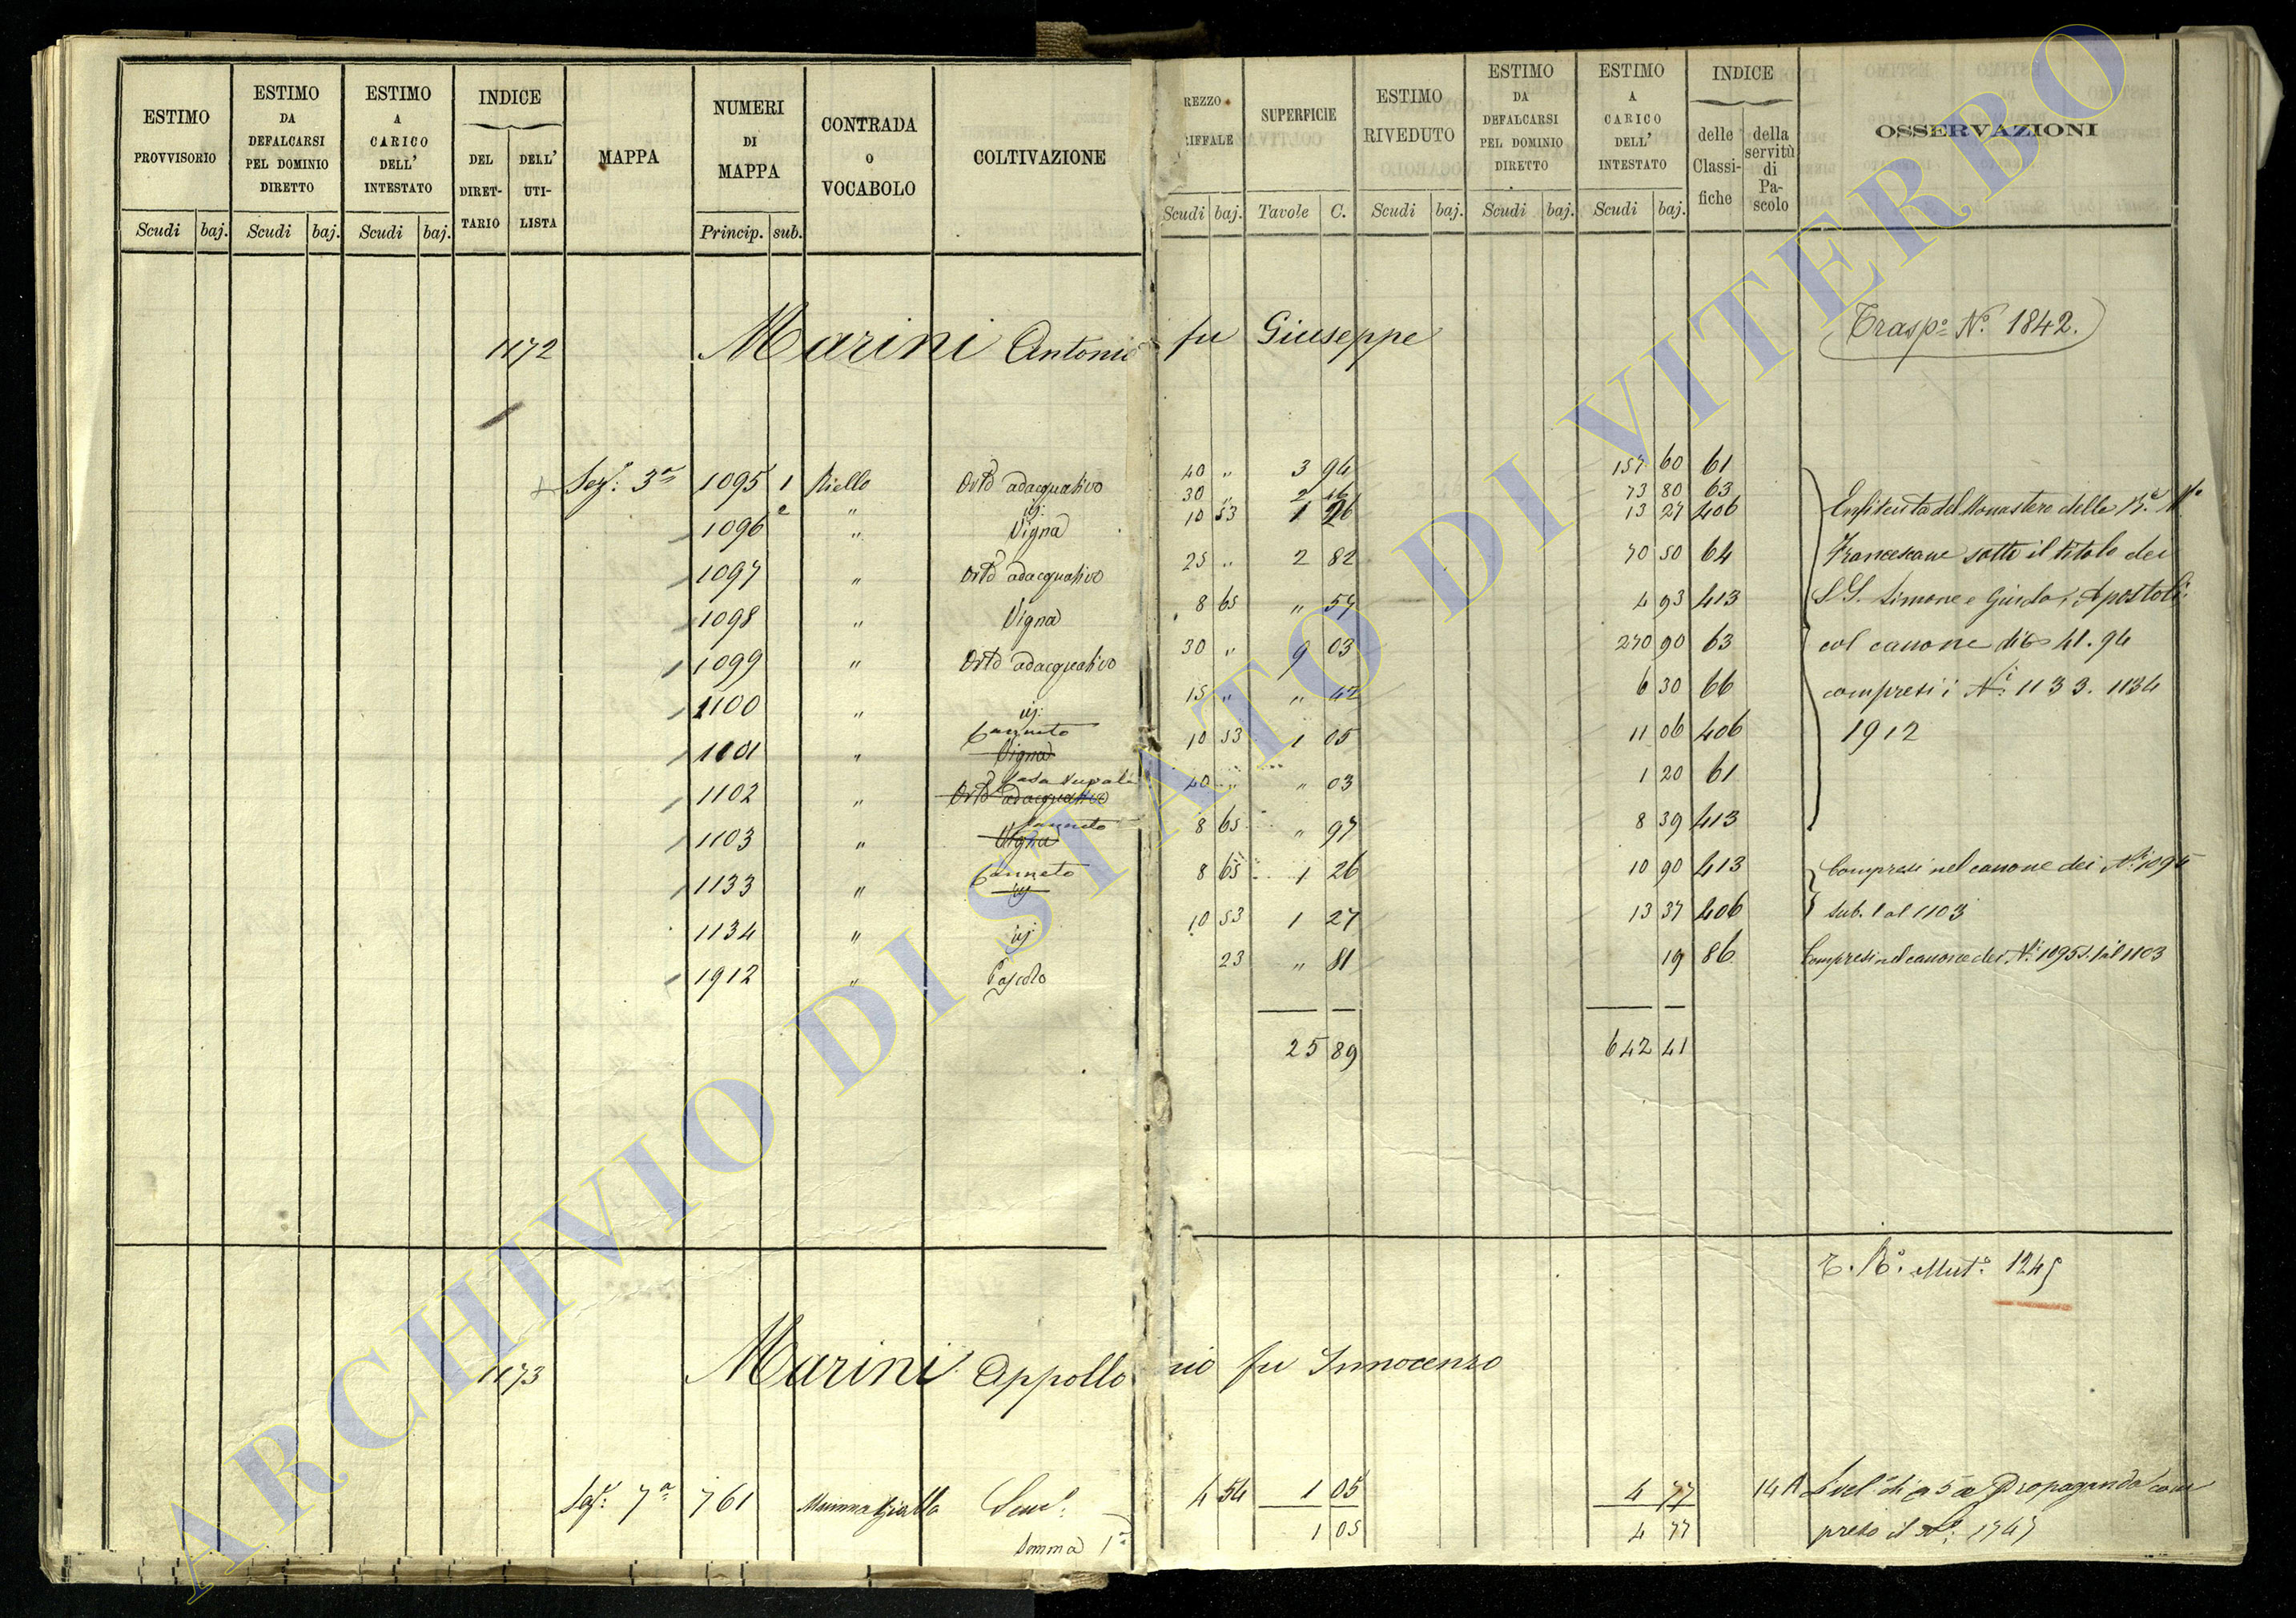 ESTIMO PROVVISORIO | ESTIMO DA DEFALCARSI PEL DOMINIO DIRETTO | ESTIMO A CARICO DELL' INTESTATO | INDICE DEL DIRETTARIO | DELL' UTILISTA | MAPPA | NUMERI DI MAPPA | CONTRADA O VOCABOLO | COLTIVAZIONE | REZZO RIFFALE | SUPERFICIE | ESTIMO RIVEDUTO | ESTIMO DA DEFALCARSI PEL DOMINIO DIRETTO | ESTIMO A CARICO DELL' INTESTATO | INDICE delle Classifiche | della servitù di Pascolo | OSSERVAZIONI
Scudi | baj. | Scudi | baj. | Scudi | baj. | Princip. | sub. | Scudi | baj. | Tavole | C. | Scudi | baj. | Scudi | baj. | Scudi | baj.
Trasp.o N.o 1842.
1172 Marini Antonio fu Giuseppe
Sez: 3a 1095 1 Riello Orto adacquativo 40 " 3 94 157 60 61
2 " id: 30 " 2 46 73 80 63
1096 " Vigna 10 53 1 26 13 27 406
1097 " Orto adacquativo 25 " 2 82 70 50 64
1098 " Vigna 8 65 " 57 4 93 413
1099 " Orto adacquativo 30 " 9 03 270 90 63
1100 " id: 15 " " 42 6 30 66
1101 " Canneto Vigna 10 53 1 05 11 06 406
1102 " Casa Orto adacquativo 40 " " 03 1 20 61
1103 " Canneto Vigna 8 65 " 97 8 39 413
1133 " Canneto id 8 65 1 26 10 90 413
1134 " id 10 53 1 27 13 37 406
1912 " Pascolo 23 " 81 19 86
25 89 642 41
Enfiteuta del Monastero delle
Francescane sotto il titolo dei
SS. Simone e Giuda Apostoli
col canone di 41.94
compresi i N.i 1133. 1134
1912
Compresi nel canone dei N.i 1095
sub. 1 al 1103
Compresi nel canone dei N.i 1095 s. 1 al 1103
1245
1173 Marini Appollonio fu Innocenzo
Sez. 7a 761 Mammagialla Sem. 4 54 1 05 4 77 14
Somma 1 05 4 77
Propaganda com
preso il N.o 1747
ARCHIVIO DI STATO DI VITERBO